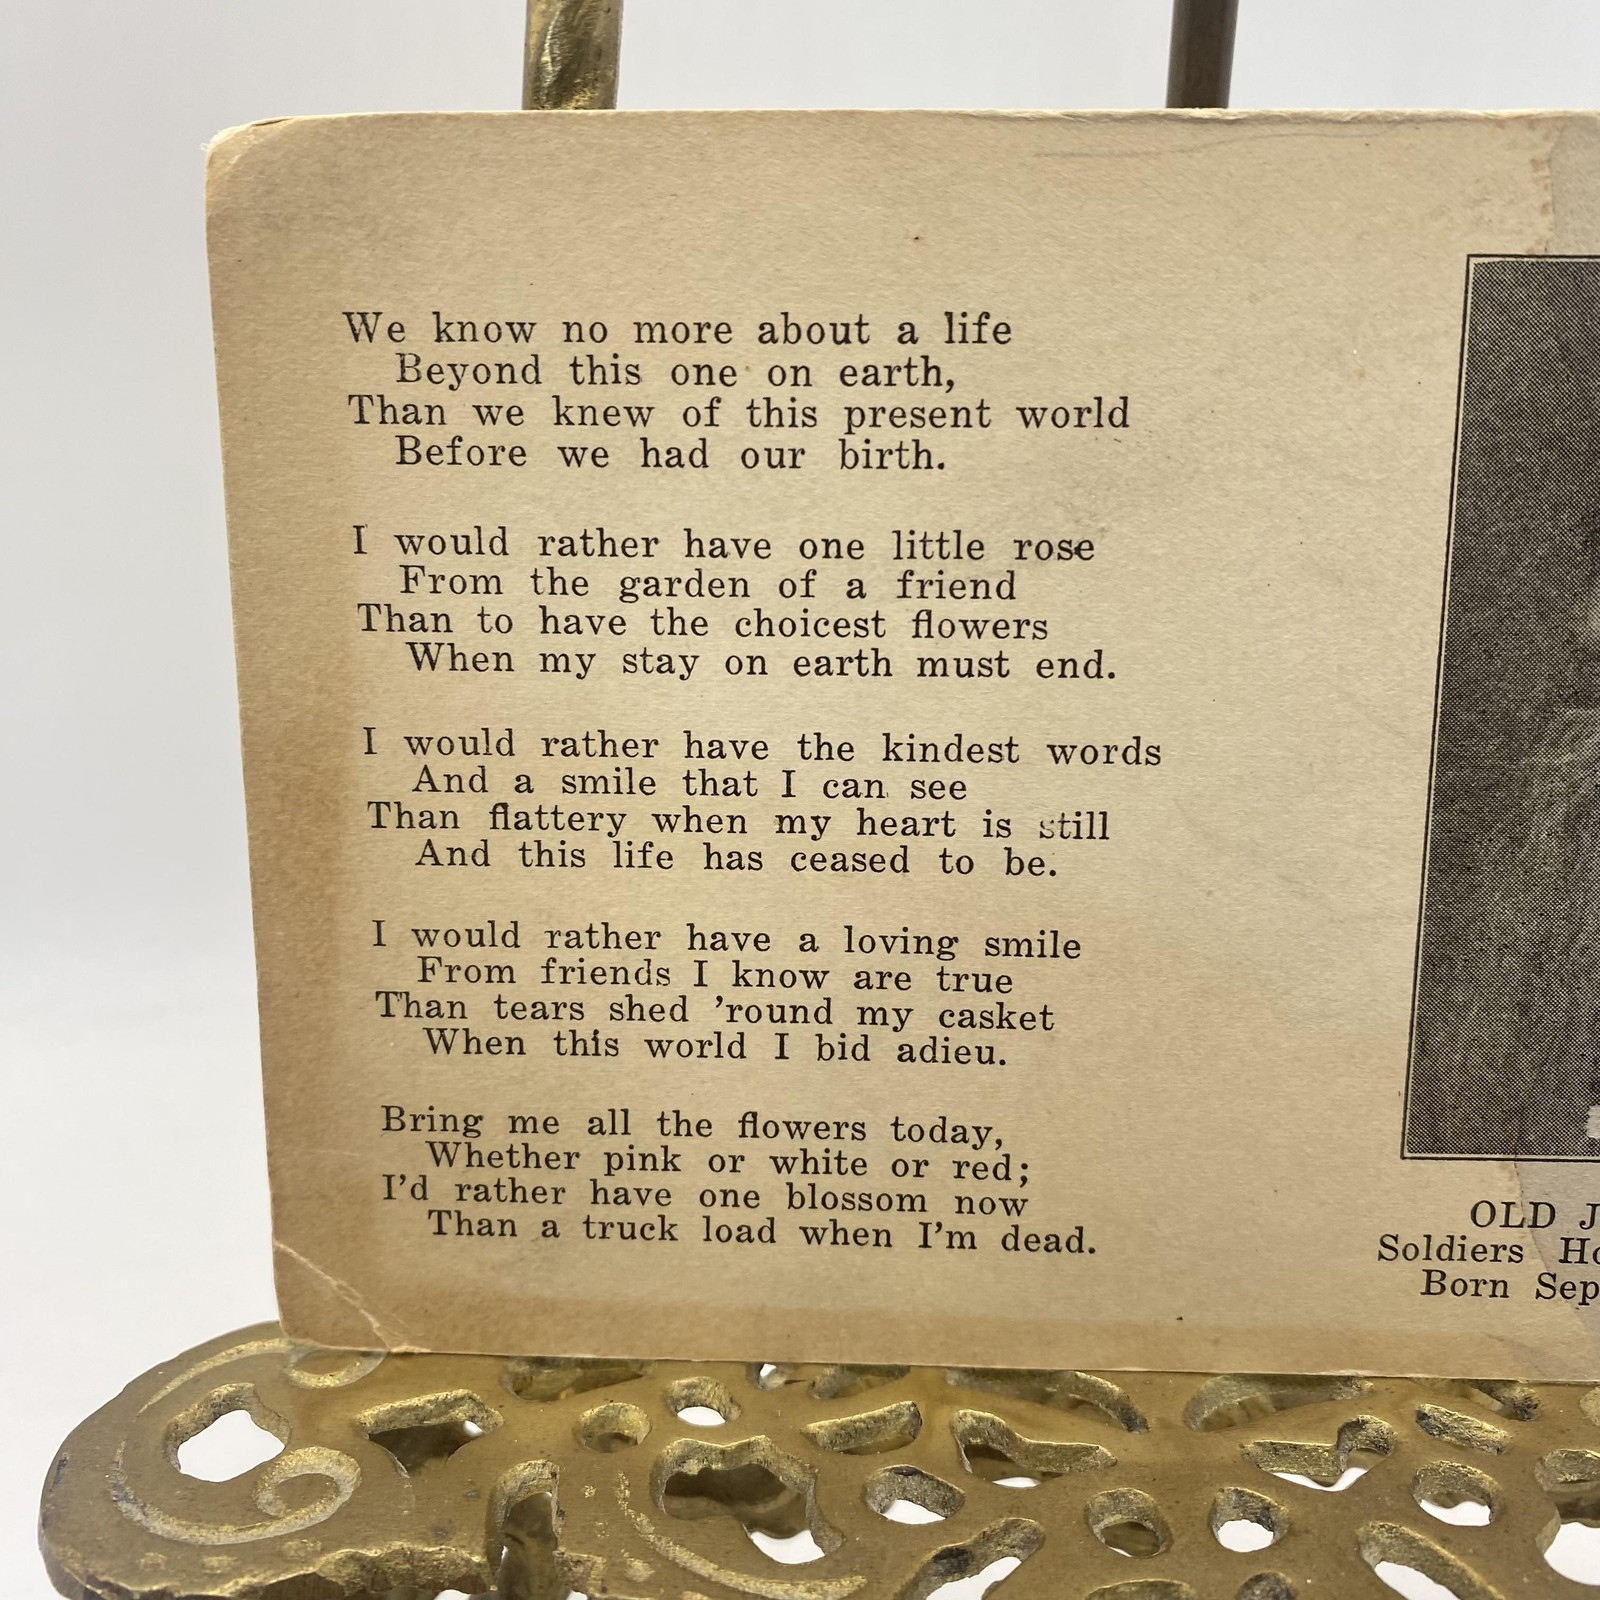 We know no more about a life
Beyond this one on earth,
Than we knew of this present world
Before we had our birth.
I would rather have one little rose
From the garden of a friend
Than to have the choicest flowers
When my stay on earth must end.
I would rather have the kindest words
And a smile that I can see
Than flattery when my heart is still
And this life has ceased to be.
I would rather have a loving smile
From friends I know are true
Than tears shed 'round my casket
When this world I bid adieu.
Bring me all the flowers today,
Whether pink or white or red;
I'd rather have one blossom now
Than a truck load when I'm dead.
OLD J
Soldiers Ho
Born Sep